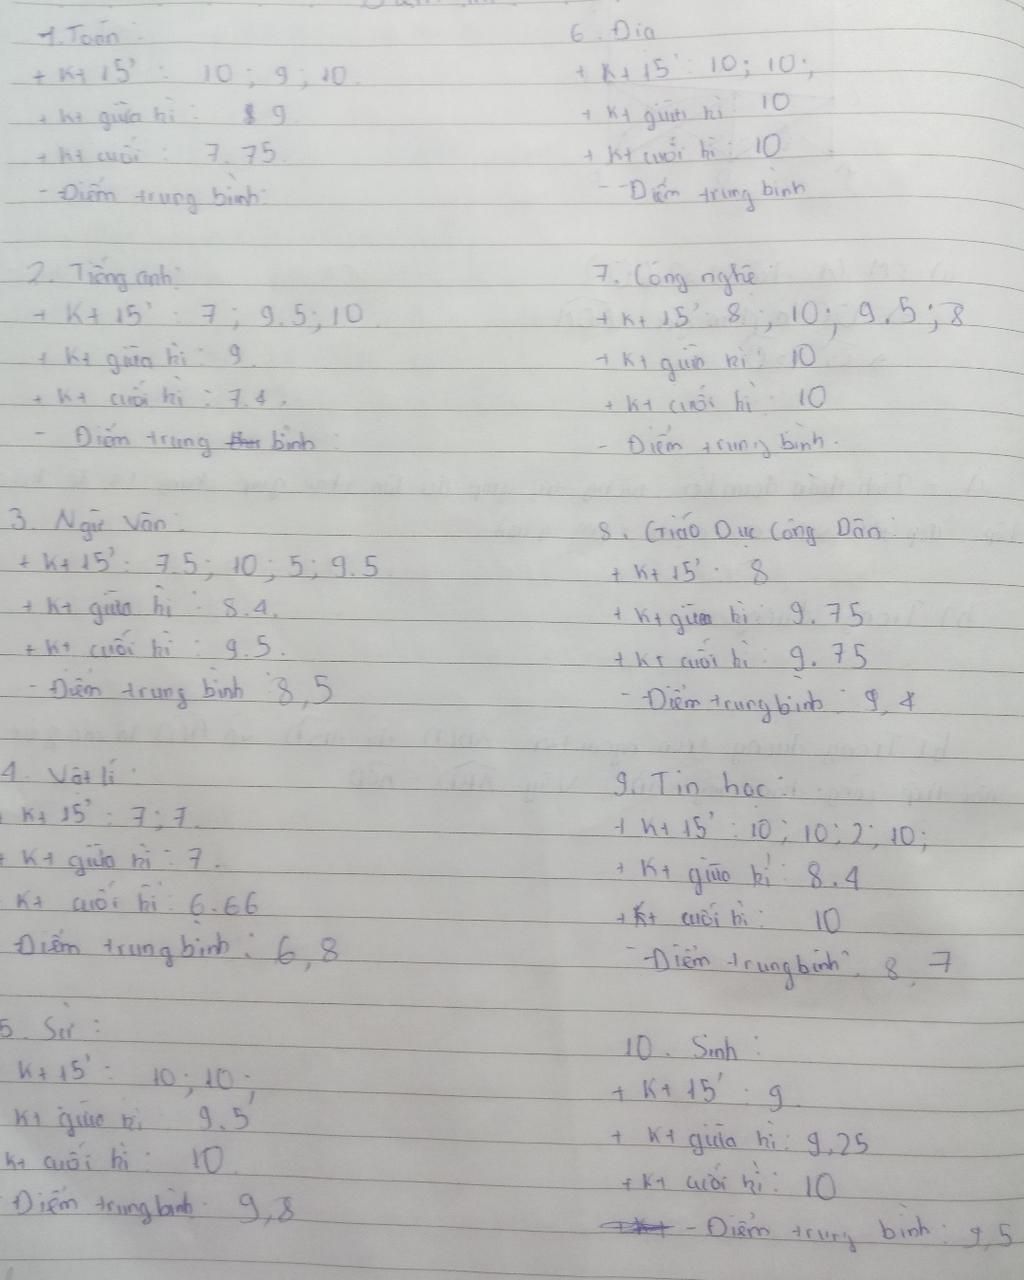 1. Toán:
+ Kt 15': 10; 9; 10.
+ Kt giữa kì: 9
+ Kt cuối: 7.75
- Điểm trung bình:
2. Tiếng anh:
+ Kt 15': 7; 9.5; 10
+ Kt giữa kì: 9
+ Kt cuối kì: 7.4.
- Điểm trung bình:
3. Ngữ Văn:
+ Kt 15': 7.5; 10; 5; 9.5
+ Kt giữa kì: 8.4.
+ Kt cuối kì: 9.5.
- Điểm trung bình: 8,5
4. Vật lí:
+ Kt 15': 7; 7.
+ Kt giữa kì: 7.
Kt cuối kì: 6.66
Điểm trung bình: 6,8
5. Sử:
Kt 15': 10; 10;
Kt giữa kì: 9.5
Kt cuối kì: 10
Điểm trung bình: 9,8
6. Địa
+ Kt 15': 10; 10;
+ Kt giữa kì: 10
+ Kt cuối kì: 10
- Điểm trung bình
7. Công nghệ:
+ Kt 15': 8; 10; 9.5; 8
+ Kt giữa kì: 10
+ Kt cuối kì: 10
- Điểm trung bình.
8. Giáo Dục Công Dân:
+ Kt 15': 8
+ Kt giữa kì: 9.75
+ Kt cuối kì: 9.75
- Điểm trung bình: 9,4
9. Tin học:
+ Kt 15': 10; 10; 2; 10;
+ Kt giữa kì: 8.4
+ Kt cuối kì: 10
- Điểm trung bình: 8,7
10. Sinh:
+ Kt 15': 9
+ Kt giữa kì: 9,25
+ Kt cuối kì: 10
- Điểm trung bình: 9,5